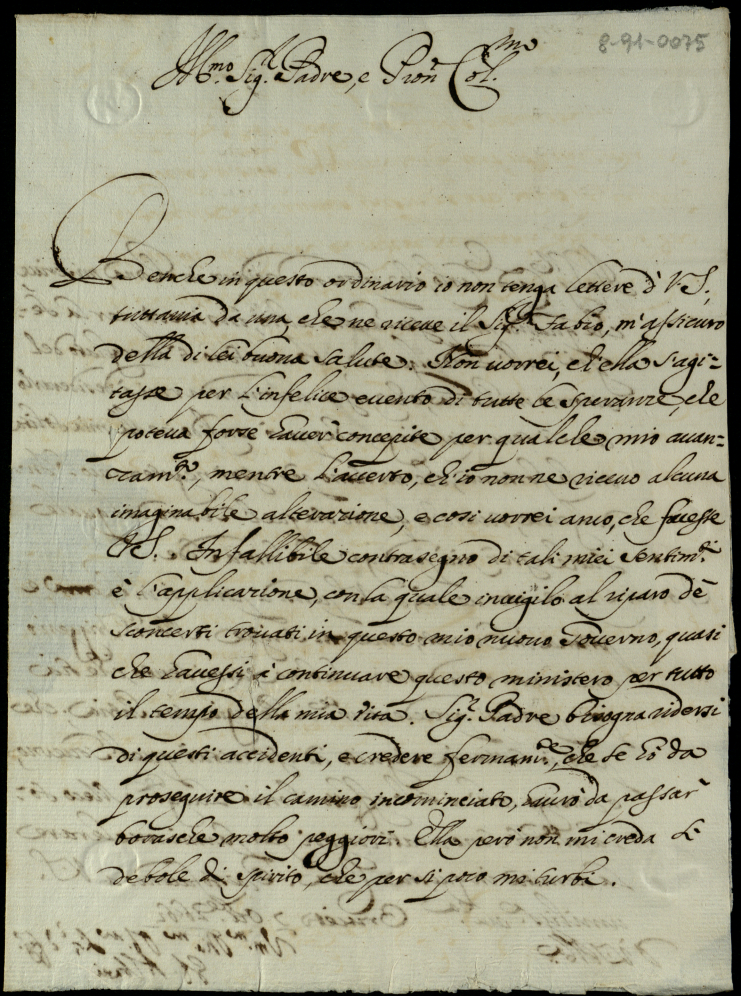 8-91-0075
Ill.mo Sig.r Padre, e Pron Col.mo
Benche in questo ordinario io non tenga lettere d V.S.,
tuttavia da una, che ne riceve il Sig.r Fabio, m'assicuro
della di lei buona salute. Non vorrei, ch'ella s'agi=
tasse per l'infelice evento di tutte le speranze, che
poteva forse haver concepite per qualche mio avan=
zam.to, mentre l'accerto, ch'io non ne ricevo alcuna
imaginabile alterazione, e così vorrei anco, che facesse
V.S. Infallibile contrasegno di tali miei sentim.ti
è l'applicazione, con la quale invigilo al riparo dè
sconcerti trovati in questo mio nuovo Governo, quasi
che havessi à continuare questo ministero per tutto
il tempo della mia vita. Sig.r Padre bisogna ridersi
di questi accidenti, e credere fermam.te, che se hò da
proseguire il camino incominciato, havrò da passar
borasche molto peggiori. Ella però non mi creda di
debole di spirito, che per si poco mi turbi.